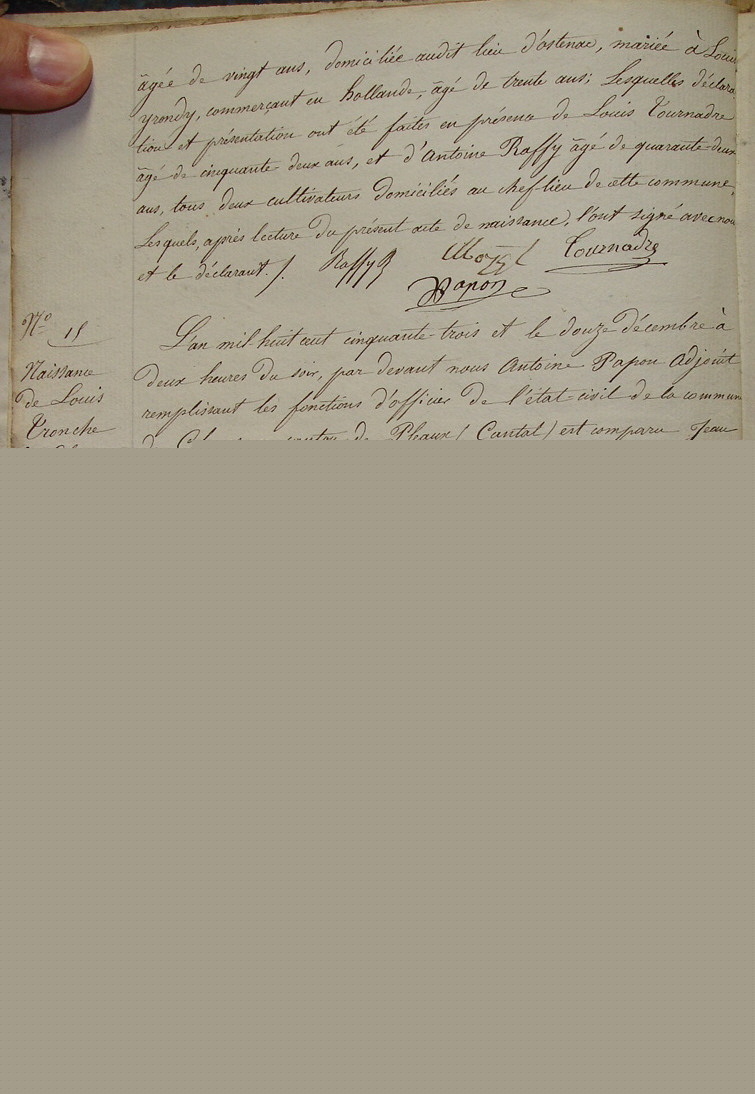 âgée de vingt ans, domiciliée audit lieu d'ostenac, mariée à Louis
yrondy, commerçant en hollande, âgé de trente ans; Lesquelles déclara
tion et présentation ont été faites en présence de Louis Tournadre
âgé de cinquante deux ans, et d'Antoine Raffy âgé de quarante-deux
ans, tous deux cultivateurs domiciliés au chef lieu de cette commune,
Lesquels, après lecture du présent acte de naissance, l'ont signé avec nou
et le déclarant. /. Raffy Tournadre
Papon
Nº 15
Naissance
de Louis
Tronche
L'an mil huit cent cinquante-trois et le douze décembre à
deux heures du soir, par devant nous Antoine Papon Adjoint
remplissant les fonctions d'officier de l'état-civil de la commun
de Pleaux (Cantal) est comparu Jean